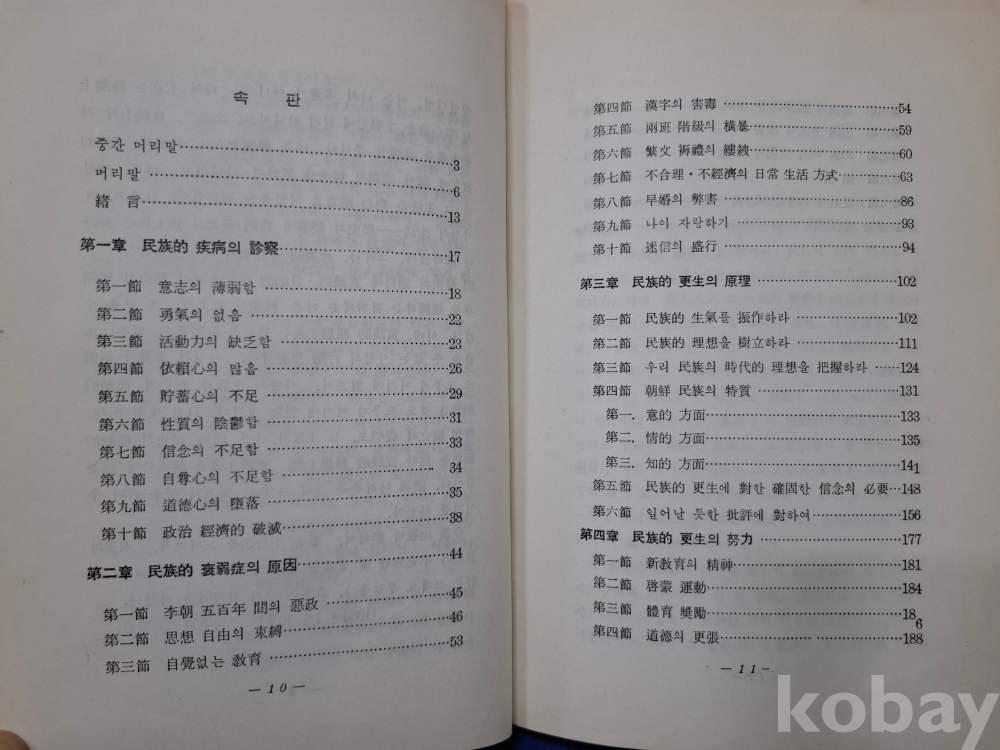 속 판
중간 머리말 3
머리말 6
緖 言 13
第一章 民族的 疾病의 診察 17
第一節 意志의 薄弱함 18
第二節 勇氣의 없음 22
第三節 活動力의 缺乏함 23
第四節 依賴心의 많음 26
第五節 貯蓄心의 不足 29
第六節 性質의 陰鬱함 31
第七節 信念의 不足함 33
第八節 自尊心의 不足함 34
第九節 道德心의 墮落 35
第十節 政治 經濟的 破滅 38
第二章 民族的 衰弱症의 原因 44
第一節 李朝 五百年 間의 惡政 45
第二節 思想 自由의 束縛 46
第三節 自覺없는 敎育 53
— 10 —
第四節 漢字의 害毒 54
第五節 兩班 階級의 橫暴 59
第六節 繁文 褥禮의 縷絏 60
第七節 不合理·不經濟의 日常 生活 方式 63
第八節 早婚의 弊害 86
第九節 나이 자랑하기 93
第十節 迷信의 盛行 94
第三章 民族的 更生의 原理 102
第一節 民族的 生氣를 振作하라 102
第二節 民族的 理想을 樹立하라 111
第三節 우리 民族의 時代的 理想을 把握하라 124
第四節 朝鮮 民族의 特質 131
第一. 意的 方面 133
第二. 情的 方面 135
第三. 知的 方面 141
第五節 民族的 更生에 對한 確固한 信念의 必要 148
第六節 일어날 듯한 批評에 對하여 156
第四章 民族的 更生의 努力 177
第一節 新敎育의 精神 181
第二節 啓蒙 運動 184
第三節 體育 奬勵 186
第四節 道德의 更張 188
— 11 —
kobay